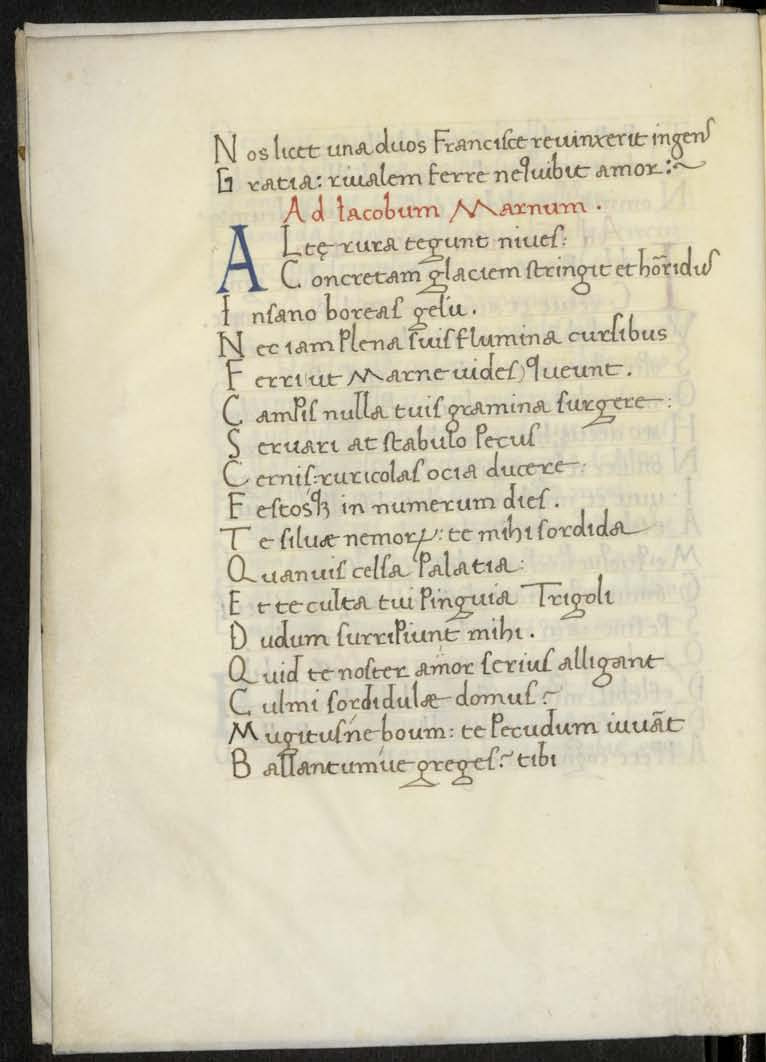 Nos licet una duos Francisce reuinxerit ingens
Gratia: riualem ferre nequibit amor:~
Ad Iacobum Marnum .
ALtę rura tegunt niues:
Concretam glaciem stringit et hōridus
Insano boreas gelu .
Nec iam plena suis flumina cursibus
Ferri (ut Marne uides) queunt .
Campis nulla tuis gramina surgere:
Seruari at stabulo pecus
Cernis: ruricolas ocia ducere:
Festosqꝫ in numerum dies .
Te siluæ nemorꝝ: te mihi sordida
Quamuis celsa Palatia:
Et te culta tui pinguia Trigoli
Dudum surripiunt mihi .
Quid te noster amor serius alligant
Culmi sordidulæ domus?
Mugitusne boum: te pecudum iuuāt
Ballantumue greges? tibi